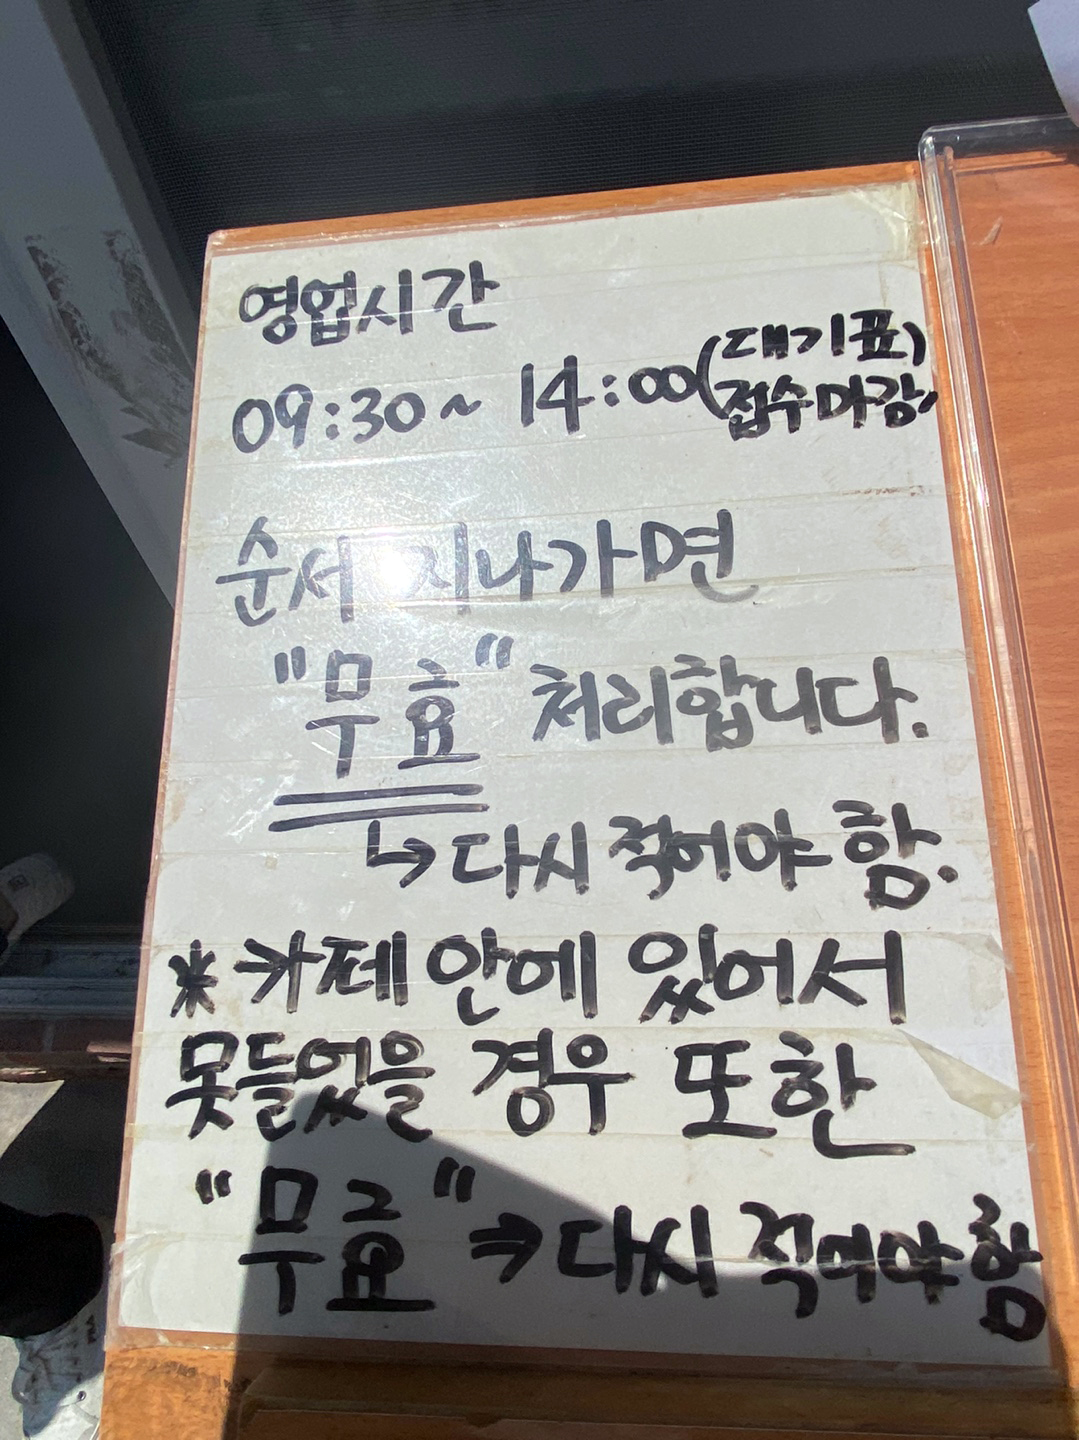 영업시간
09:30~ 14:00(대기표)
접수마감.
순서 지나가면
"무효" 처리합니다.
↳다시 적어야 함.
* 카페 안에 있어서
못들었을 경우 또한
"무효" ⇒ 다시 적어야 함